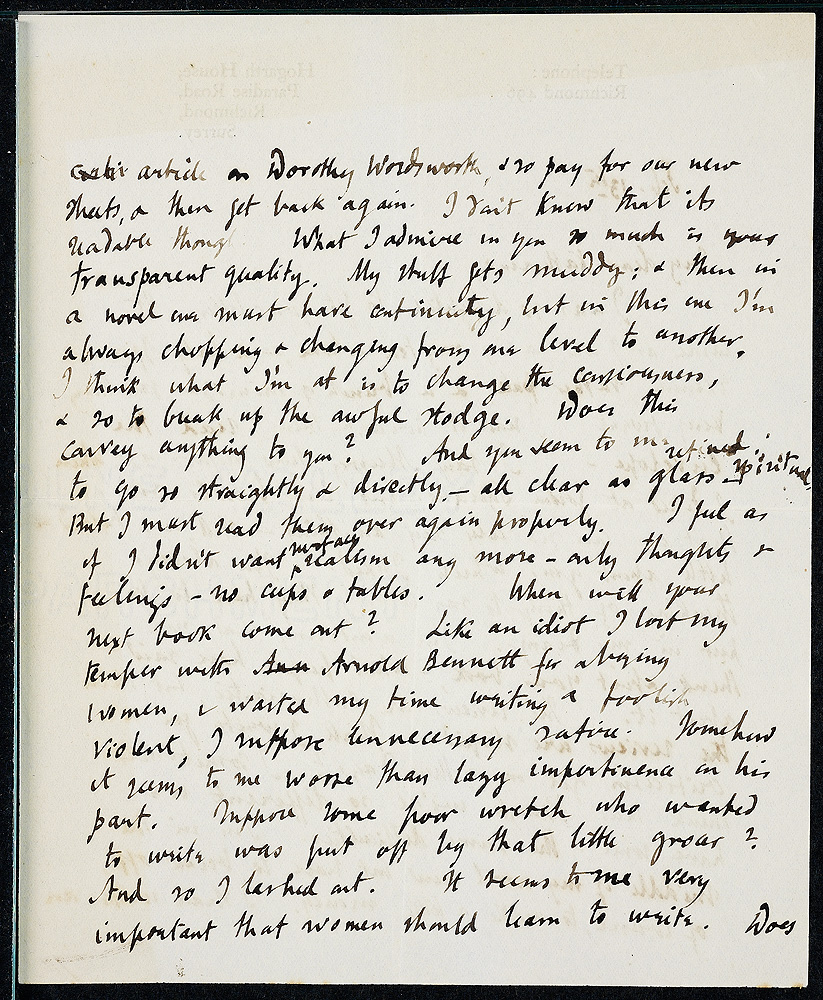 Telephone:
Richmond 496
Hogarth House,
Paradise Road,
Richmond,
Surrey
article on Dorothy Wordsworth, & so pay for our new
sheets, & then get back again. I don't know that its
readable though What I admire in you so much is your
transparent quality. My stuff gets muddy; & then in
a novel one must have continuity, but in this one I'm
always chopping & changing from one level to another.
I think what I'm at is to change the consciousness,
& so to break up the awful stodge. Does this
convey anything to you? And you seem to me
to go so straightly & directly, – all clear as glass – refined, spiritual.
But I must read them over again properly. I feel as
if I didn't want realism any more – only thoughts &
feelings – no cups & tables. When will your
next book come out? Like an idiot I lost my
temper with Ann Arnold Bennett for abusing
women, & wasted my time writing a foolish
violent, I suppose unnecessary satire. Somehow
it seems to me worse than lazy impertinence on his
part. Suppose some poor wretch who wanted
to write was put off by that little grocer?
And so I lashed out. It seems to me very
important that women should learn to write. Does